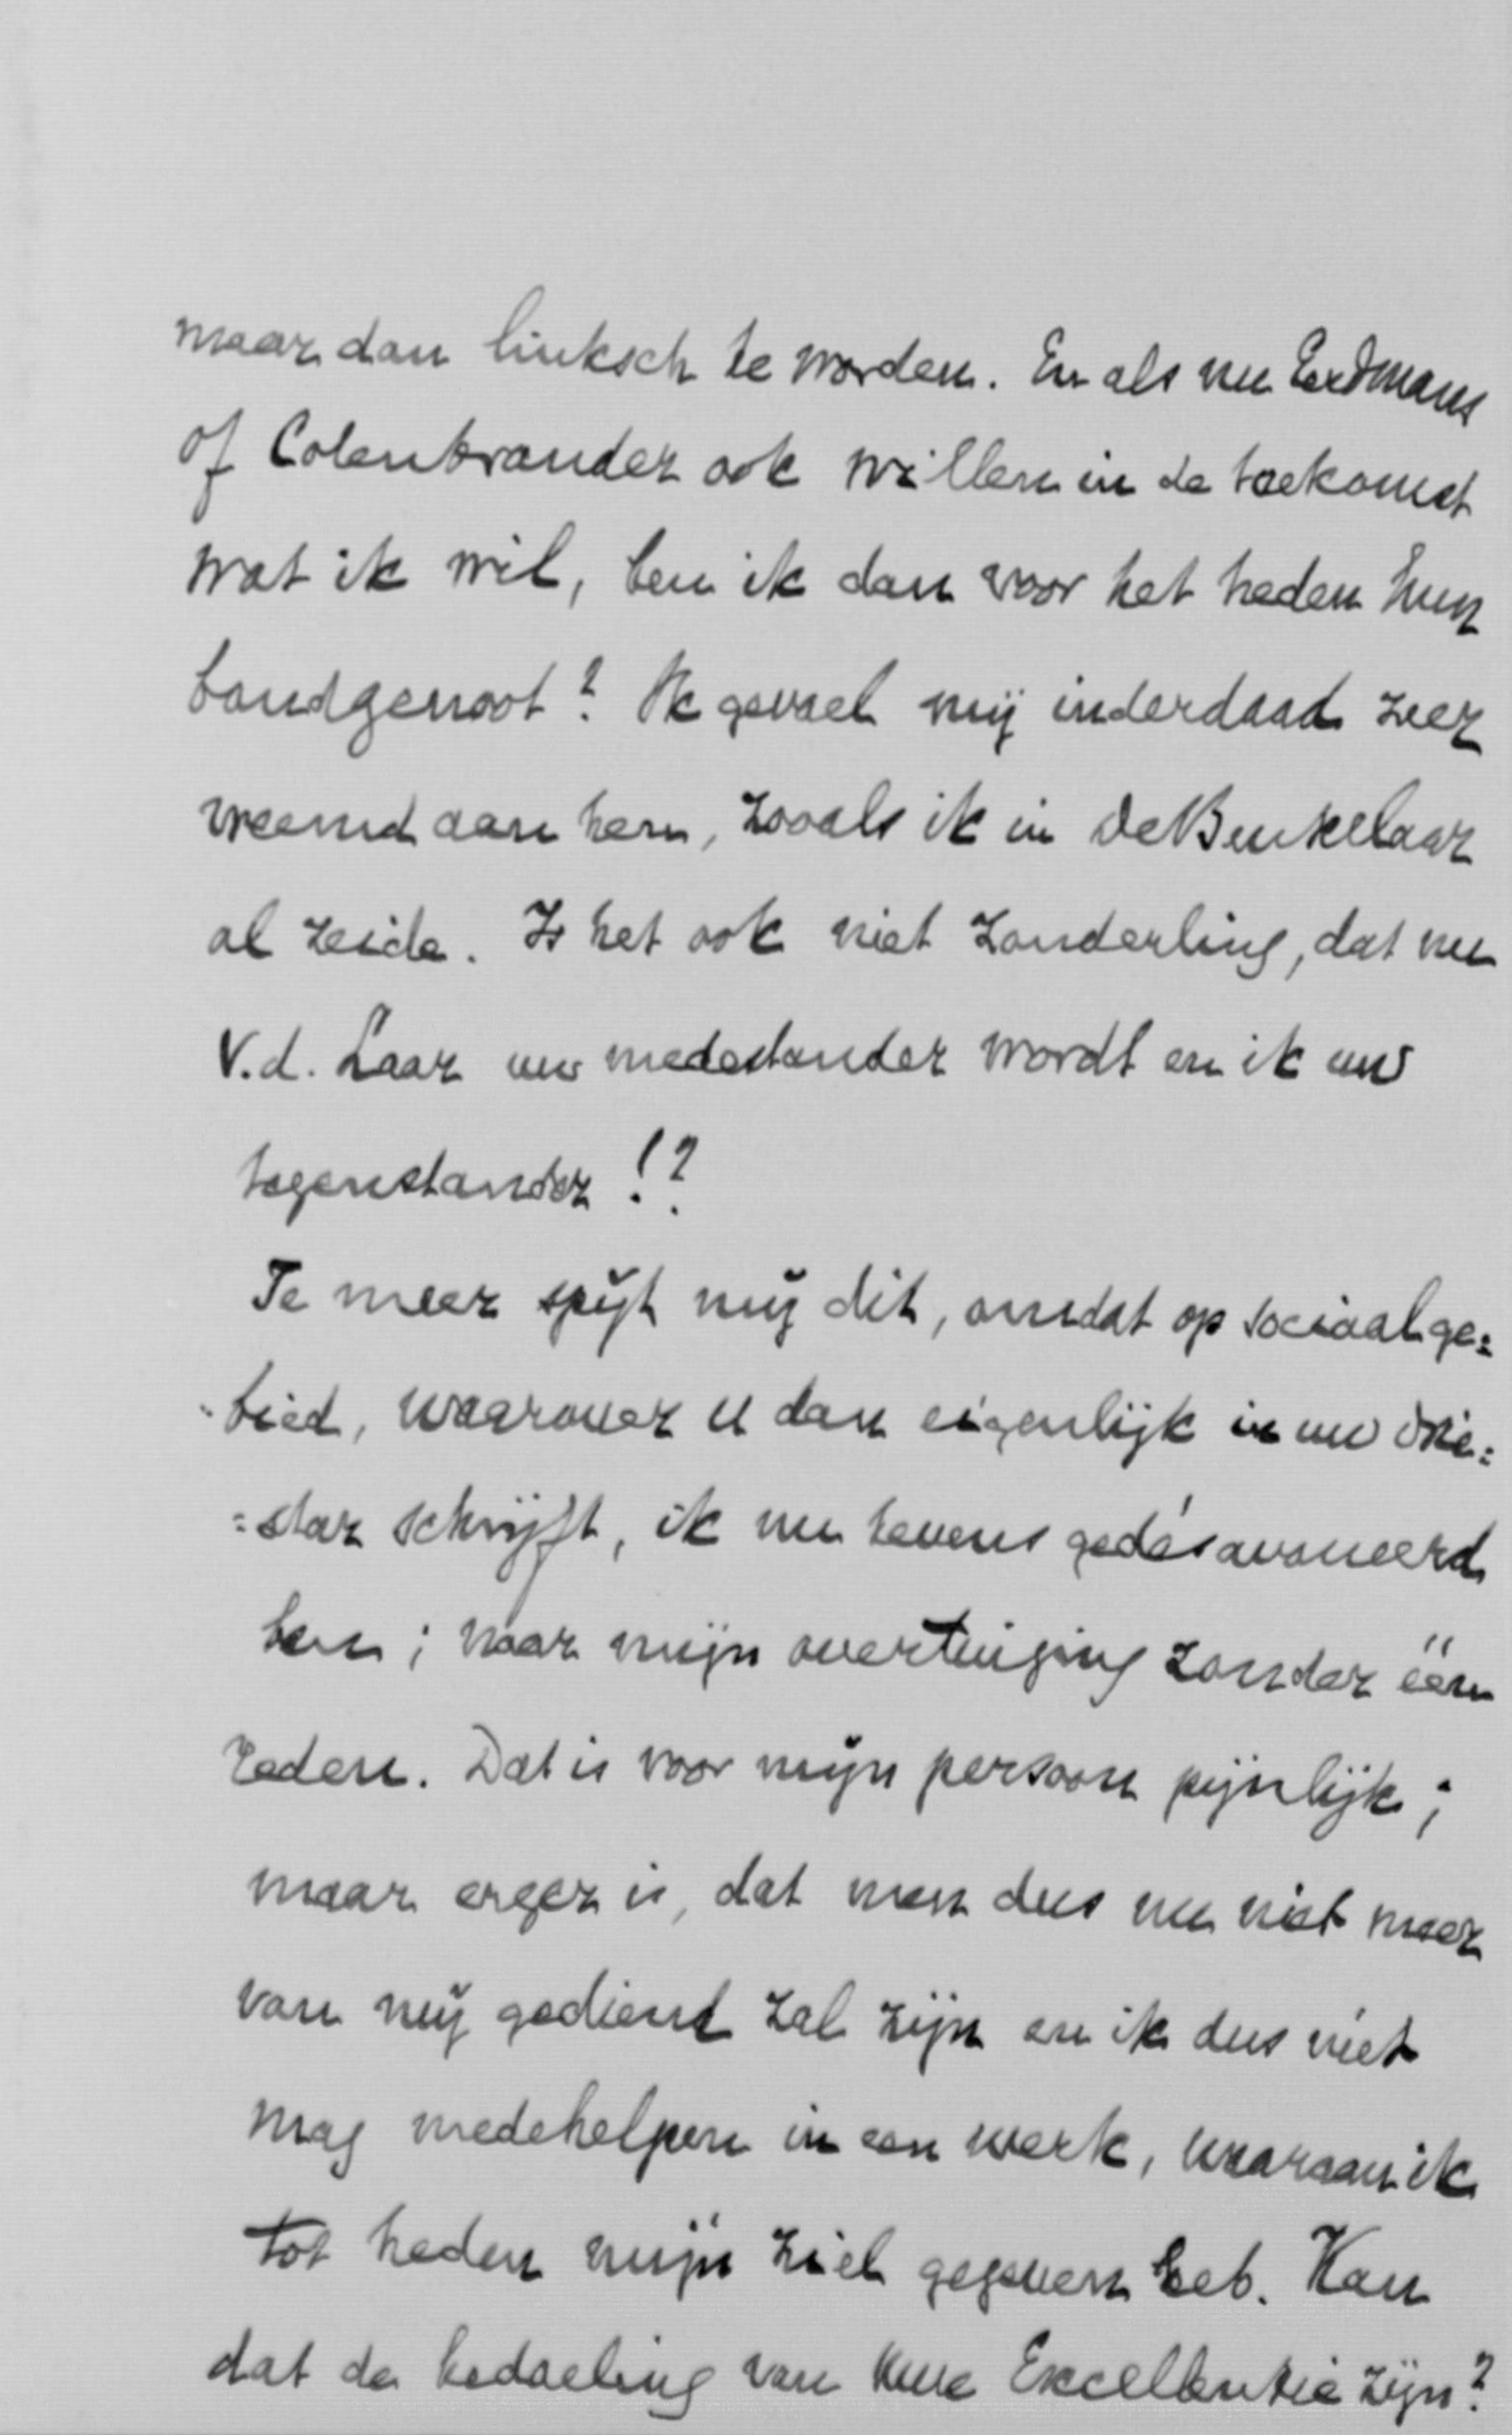 maar dan linksch te worden. En als nu Eerdmans
of Colenbrander ook willen in de toekomst
wat ik wil, ben ik dan voor het heden hun
bondgenoot? Ik gevoel mij inderdaad zeer
vreemd aan hen, zooals ik in De Beukelaar
al zeide. Is het ook niet zonderling, dat nu
V.d. Laar uw medestander wordt en ik uw
tegenstander!?
Te meer spijt mij dit, omdat op sociaal ge=
bied, waarover U dan eigenlijk in uw drie=
=star schrijft, ik nu tevens gedésavoueerd
ben; naar mijn overtuiging zonder één
reden. Dat is voor mijn persoon pijnlijk;
maar erger is, dat men dus nu niet meer
van mij gediend zal zijn en ik dus niet
mag medehelpen in een werk, waaraan ik
tot heden mijn ziel gegeven heb. Kan
dat de bedoeling van Uwe Excellentie zijn?